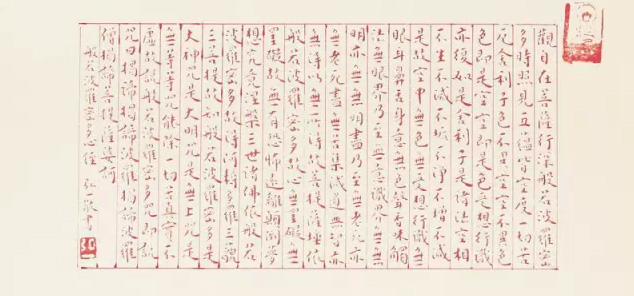 觀自在菩薩行深般若波羅蜜
多時照見五蘊皆空度一切苦
厄舍利子色不異空空不異色
色即是空空即是色受想行識
亦復如是舍利子是諸法空相
不生不滅不垢不淨不增不減
是故空中無色無受想行識無
眼耳鼻舌身意無色聲香味觸
法無眼界乃至無意識界無無
明亦無無明盡乃至無老死亦
無老死盡無苦集滅道無智亦
無得以無所得故菩提薩埵依
般若波羅蜜多故心無罣礙無
罣礙故無有恐怖遠離顛倒夢
想究竟涅槃三世諸佛依般若
波羅蜜多故得阿耨多羅三藐
三菩提故知般若波羅蜜多是
大神咒是大明咒是無上咒是
無等等咒能除一切苦真實不
虛故說般若波羅蜜多咒即說
咒曰揭諦揭諦波羅揭諦波羅
僧揭諦菩提薩婆訶
般若波羅蜜多心經 弘一敬書